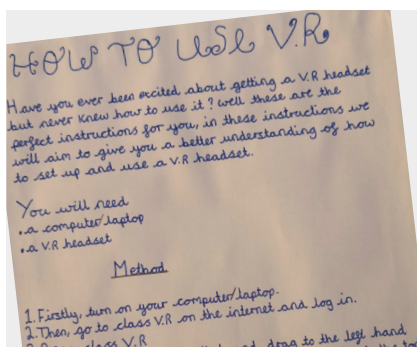 HOW TO USE V.R
Have you ever been excited about getting a V.R headset
but never knew how to use it? well these are the
perfect instructions for you, in these instructions we
will aim to give you a better understanding of how
to set up and use a V.R headset.
You will need
. a computer/laptop
. a V.R headset
Method
1. Firstly, turn on your computer/laptop.
2. Then, go to class V.R on the internet and log in.
class V.R
drag to the left hand